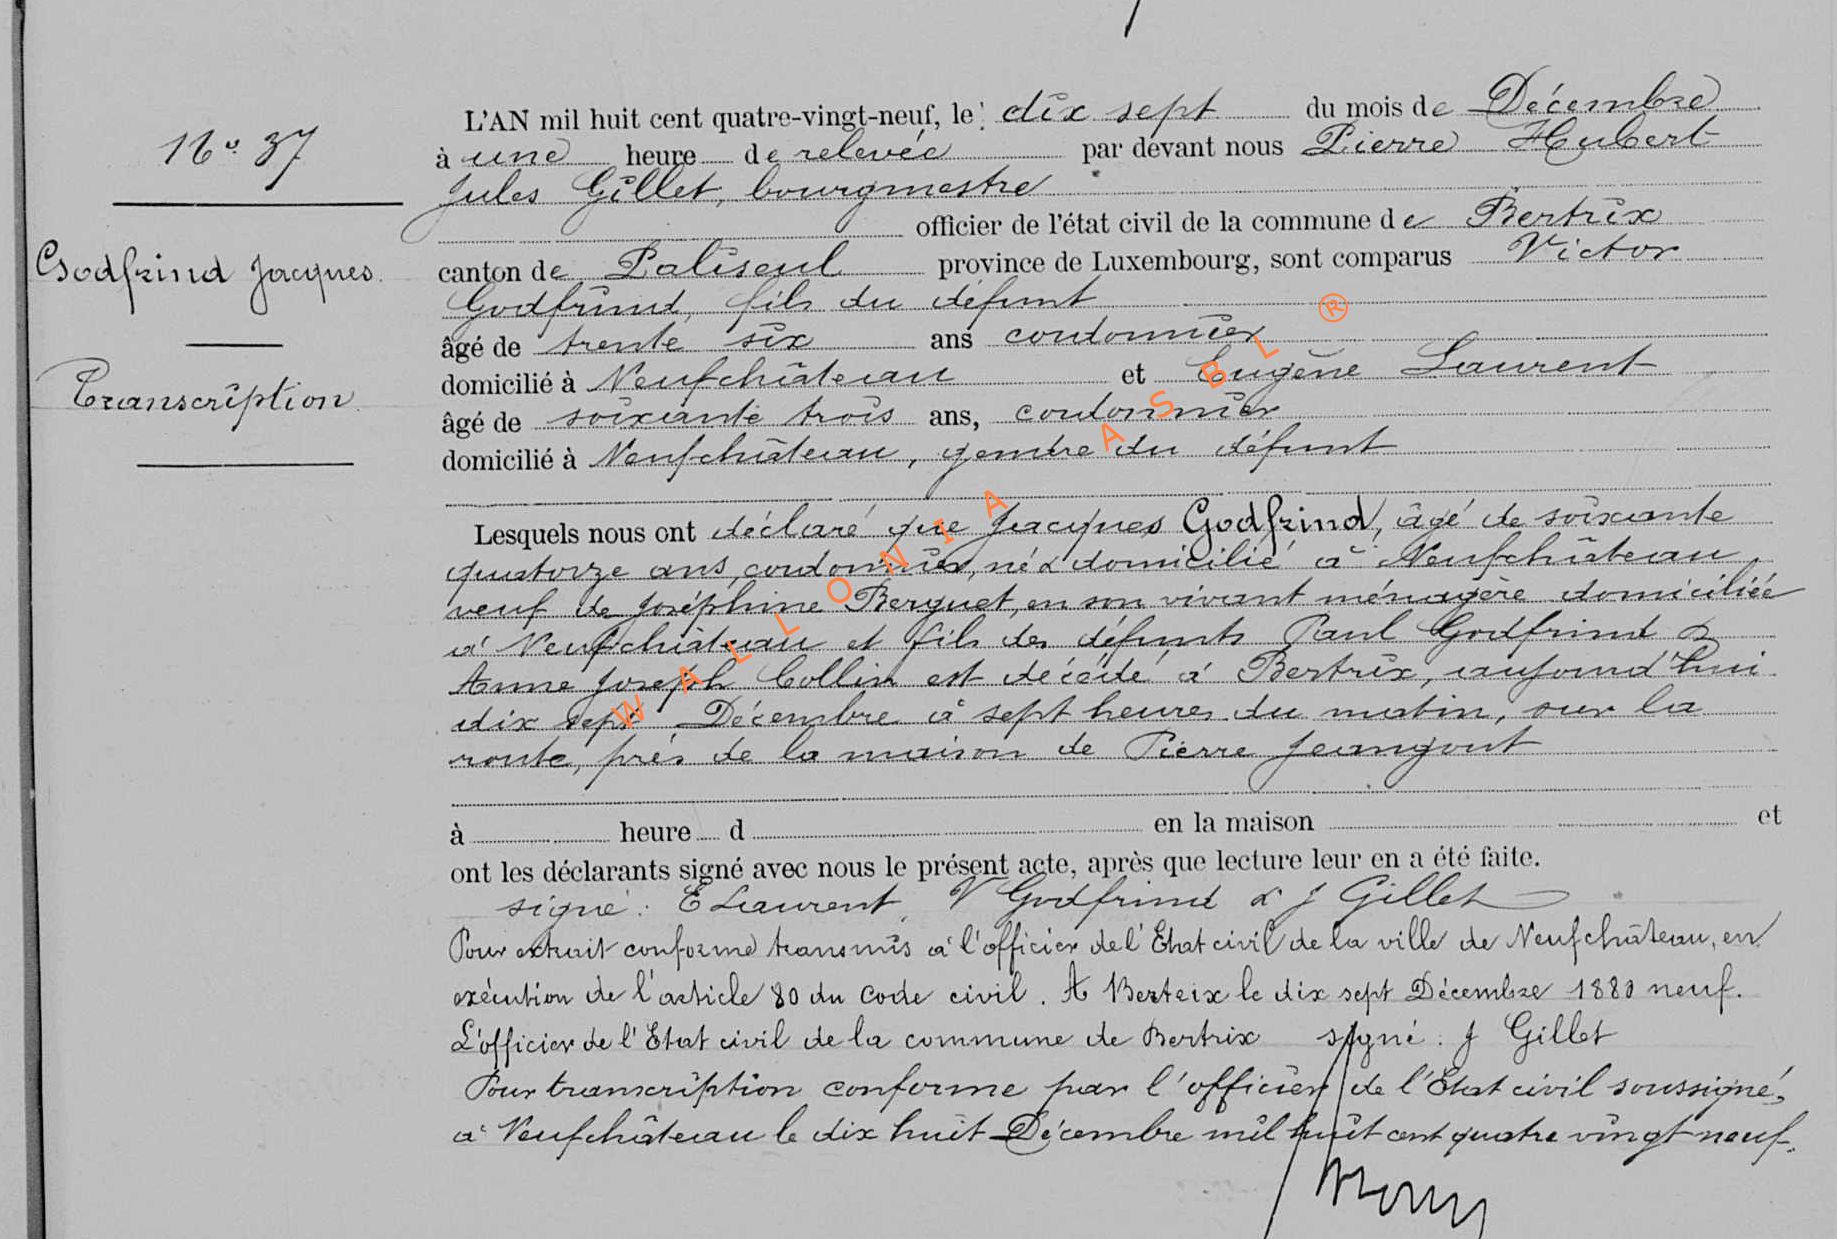 N° 37
Godfrind Jacques.
Transcription.
L'AN mil huit cent quatre-vingt-neuf, le dix sept du mois de Décembre
à une heure de relevée par devant nous Pierre Hubert
Jules Gillet, bourgmestre
officier de l'état civil de la commune de Bertrix
canton de Paliseul province de Luxembourg, sont comparus Victor
Godfrind, fils du défunt
âgé de trente six ans cordonnier
domicilié à Neufchâteau et Eugène Laurent
âgé de soixante trois ans, cordonnier
domicilié à Neufchâteau, gendre du défunt
Lesquels nous ont déclaré que Jacques Godfrind, âgé de soixante
quatorze ans, cordonnier, né & domicilié à Neufchâteau
veuf de Joséphine Berguet, en son vivant ménagère domiciliée
à Neufchâteau et fils des défunts Paul Godfrind &
Anne Joseph Collin est décédé à Bertrix, aujourd'hui
dix sept Décembre à sept heures du matin, sur la
route, près de la maison de Pierre Jeangout
à heure d en la maison et
ont les déclarants signé avec nous le présent acte, après que lecture leur en a été faite.
signé : E Laurent, V Godfrind & J Gillet
Pour extrait conforme transmis à l'officier de l'Etat civil de la ville de Neufchâteau, en
exécution de l'article 80 du Code civil. A Bertrix le dix sept Décembre 1880 neuf.
L'officier de l'Etat civil de la commune de Bertrix signé : J Gillet
Pour transcription conforme par l'officier de l'Etat civil soussigné,
à Neufchâteau le dix huit Décembre mil huit cent quatre vingt neuf.
WALLONIA ASBL ®